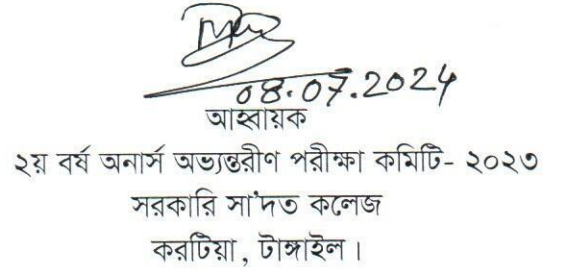 08.07.2024
আহবায়ক
২য় বর্ষ অনার্স অভ্যন্তরীণ পরীক্ষা কমিটি- ২০২৩
সরকারি সা'দত কলেজ
করটিয়া, টাঙ্গাইল।